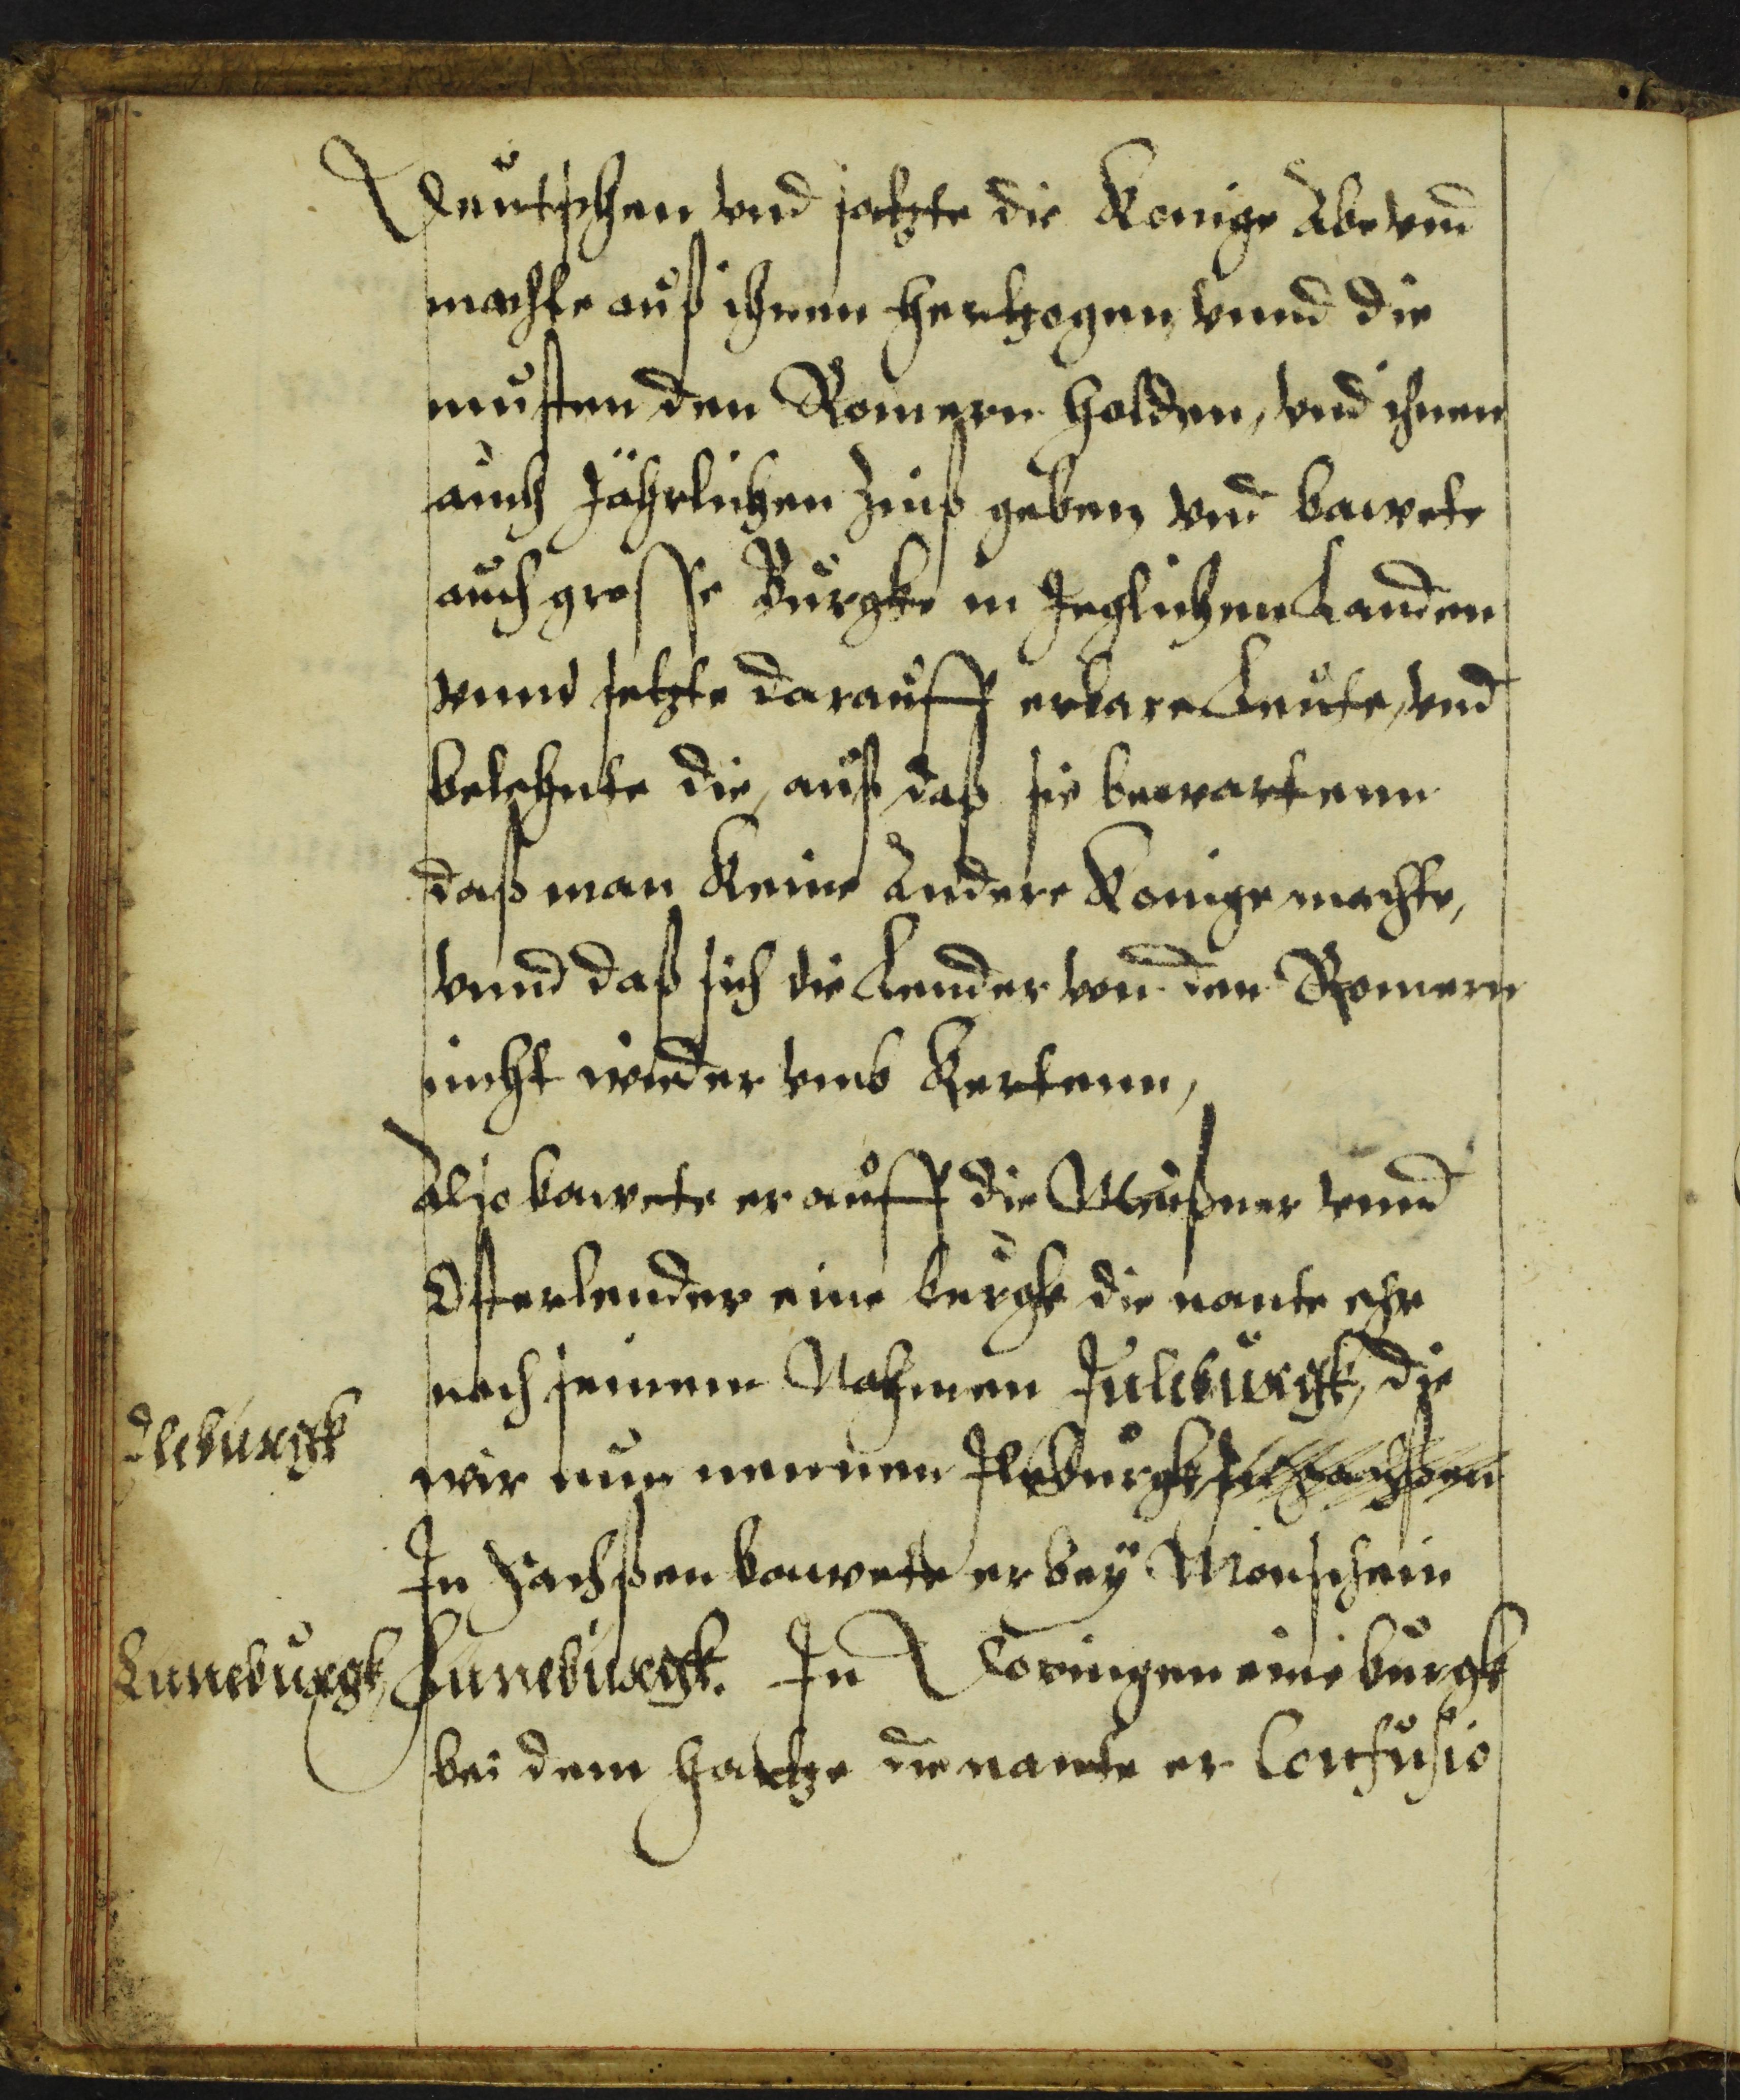 Deutschen vnd satzte die Konige abe vnd
machte auß ihnen Hertzogen, vnnd die
musten den Romern holden, vnd ihnen
auch Jährlichen Zinß geben, vnd bawete
auch grosse Burgke in Jeglichem Landen
vnnd setzte darauff erbare Leute, vnd
belehnte die, auß daß sie bewartenn
daß man keine Andere Konige machte,
vnnd daß sich die Lender von den Romern
nicht wieder vmb kertenn,
Also bawete er auff die Meißner vnnd
Osterlender eine burgk die nante ehr
nach seinem Nahmen Juleburgk, die
Ileburgk
wir nun nennen Ileburgk, In Sachßen
In Sachßen bawete er bey Monschein
Luneburgk, Luneburgk. In Doringen eine burgk
bei dem Hartze die nante er Confusio